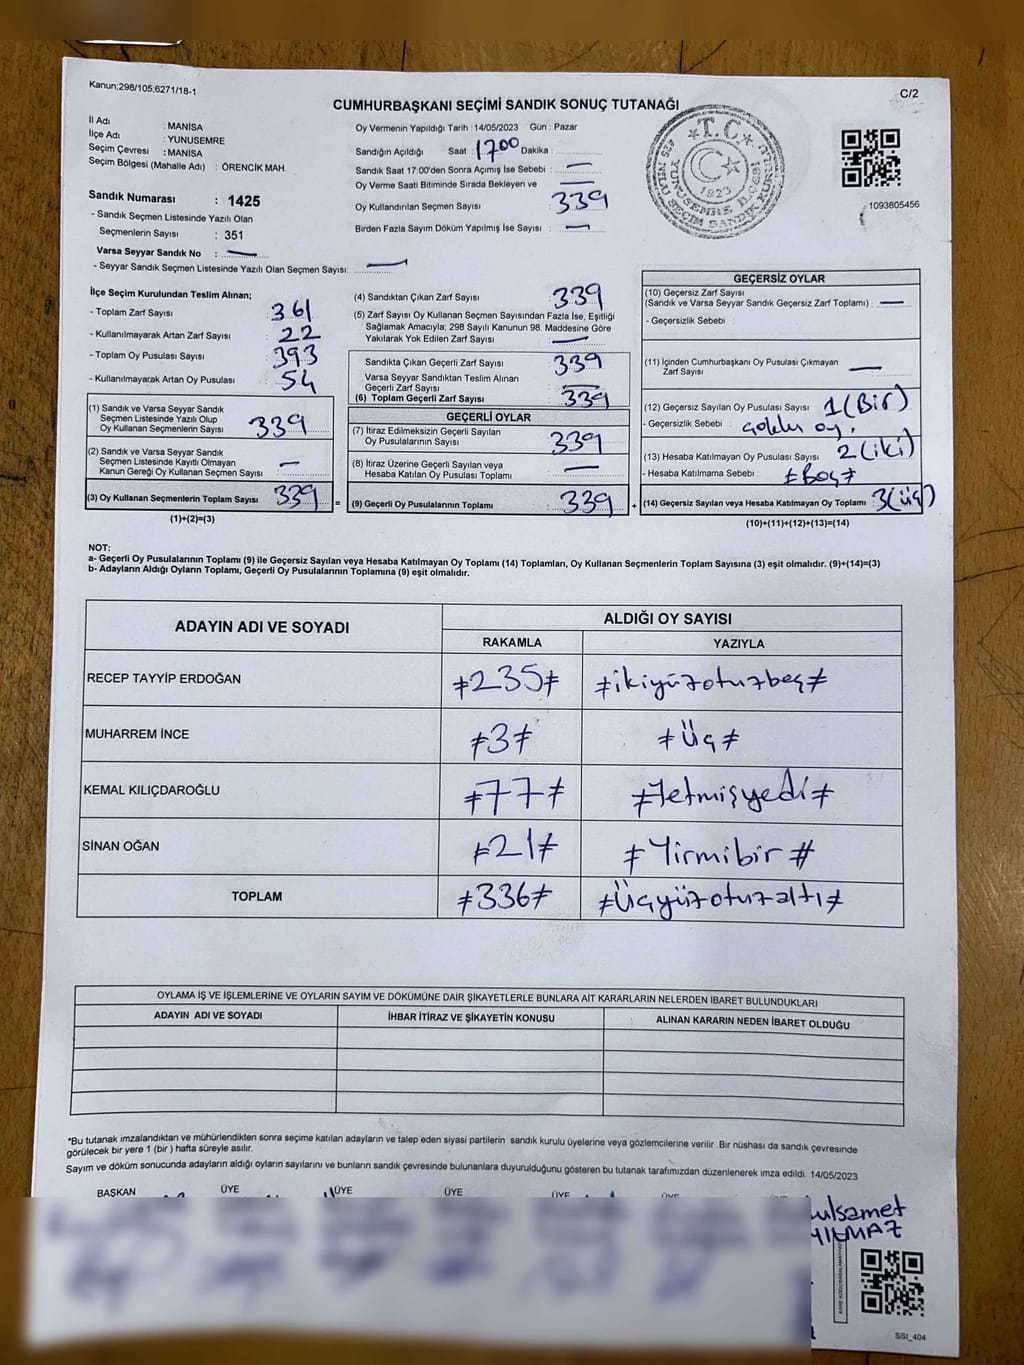 Kanun;298/105,6271/18-1
C/2
CUMHURBAŞKANI SEÇİMİ SANDIK SONUÇ TUTANAĞI
İl Adı : MANİSA
İlçe Adı : YUNUSEMRE
Seçim Çevresi : MANİSA
Seçim Bölgesi (Mahalle Adı) : ÖRENCİK MAH.
Sandık Numarası : 1425
- Sandık Seçmen Listesinde Yazılı Olan
Seçmenlerin Sayısı : 351
Varsa Seyyar Sandık No : —
- Seyyar Sandık Seçmen Listesinde Yazılı Olan Seçmen Sayısı: —
Oy Vermenin Yapıldığı Tarih : 14/05/2023 Gün : Pazar
Sandığın Açıldığı Saat : 1700 Dakika :
Sandık Saat 17:00'den Sonra Açımış İse Sebebi : —
Oy Verme Saati Bitiminde Sırada Bekleyen ve —
Oy Kullandırılan Seçmen Sayısı : 339
Birden Fazla Sayım Döküm Yapılmış İse Sayısı : —
T.C.
1923
1093805456
İlçe Seçim Kurulundan Teslim Alınan;
- Toplam Zarf Sayısı : 361
- Kullanılmayarak Artan Zarf Sayısı : 22
- Toplom Oy Pusulası Sayısı : 393
- Kullanılmayarak Artan Oy Pusulası : 54
(1) Sandık ve Varsa Seyyar Sandık
Seçmen Listesinde Yazılı Olup
Oy Kullanan Seçmenlerin Sayısı : 339
(2) Sandık ve Varsa Seyyar Sandık
Seçmen Listesinde Kayıtlı Olmayan
Kanun Gereği Oy Kullanan Seçmen Sayısı : —
(3) Oy Kullanan Seçmenlerin Toplam Sayısı : 339 =
(1)+(2)=(3)
(4) Sandıktan Çıkan Zarf Sayısı : 339
(5) Zarf Sayısı Oy Kullanan Seçmen Sayısından Fazla İse, Eşitliği
Sağlamak Amacıyla; 298 Sayılı Kanunun 98. Maddesine Göre
Yakılarak Yok Edilen Zarf Sayısı : —
Sandıkta Çıkan Geçerli Zarf Sayısı : 339
Varsa Seyyar Sandıktan Teslim Alınan
Geçerli Zarf Sayısı : —
(6) Toplam Geçerli Zarf Sayısı : 339
GEÇERLİ OYLAR
(7) İtiraz Edilmeksizin Geçerli Sayılan
Oy Pusulalarının Sayısı : 339
(8) İtiraz Üzerine Geçerli Sayılan veya
Hesaba Katılan Oy Pusulası Toplamı : —
(9) Geçerli Oy Pusulalarının Toplamı : 339 +
GEÇERSİZ OYLAR
(10) Geçersiz Zarf Sayısı
(Sandık ve Varsa Seyyar Sandık Geçersiz Zarf Toplamı) : —
- Geçersizlik Sebebi :
(11) İçinden Cumhurbaşkanı Oy Pusulası Çıkmayan
Zarf Sayısı : —
(12) Geçersiz Sayılan Oy Pusulası Sayısı : 1 (Bir)
- Geçersizlik Sebebi : çoklu oy.
(13) Hesaba Katılmayan Oy Pusulası Sayısı : 2 (iki)
- Hesaba Katılmama Sebebi : ≠Boş≠
(14) Geçersiz Sayılan veya Hesaba Katılmayan Oy Toplamı : 3 (üç)
(10)+(11)+(12)+(13)=(14)
NOT:
a- Geçerli Oy Pusulalarının Toplamı (9) ile Geçersiz Sayılan veya Hesaba Katılmayan Oy Toplamı (14) Toplamları, Oy Kullanan Seçmenlerin Toplam Sayısına (3) eşit olmalıdır. (9)+(14)=(3)
b- Adayların Aldığı Oyların Toplamı, Geçerli Oy Pusulalarının Toplamına (9) eşit olmalıdır.
ADAYIN ADI VE SOYADI
ALDIĞI OY SAYISI
RAKAMLA YAZIYLA
RECEP TAYYİP ERDOĞAN ≠235≠ ≠ikiyüzotuzbeş≠
MUHARREM İNCE ≠3≠ ≠Üç≠
KEMAL KILIÇDAROĞLU ≠77≠ ≠Yetmişyedi≠
SİNAN OĞAN ≠21≠ ≠Yirmibir#
TOPLAM ≠336≠ ≠Üçyüzotuzaltı≠
OYLAMA İŞ VE İŞLEMLERİNE VE OYLARIN SAYIM VE DÖKÜMÜNE DAİR ŞİKAYETLERLE BUNLARA AİT KARARLARIN NELERDEN İBARET BULUNDUKLARI
ADAYIN ADI VE SOYADI İHBAR İTİRAZ VE ŞİKAYETİN KONUSU ALINAN KARARIN NEDEN İBARET OLDUĞU
*Bu tutanak imzalandıktan ve mühürlendikten sonra seçime katılan adayların ve talep eden siyasi partilerin sandık kurulu üyelerine veya gözlemcilerine verilir .Bir nüshası da sandık çevresinde
görülecek bir yere 1 (bir ) hafta süreyle asılır.
Sayım ve döküm sonucunda adayların aldığı oyların sayılarını ve bunların sandık çevresinde bulunanlara duyurulduğunu gösteren bu tutanak tarafımızdan düzenlenerek imza edildi. 14/05/2023
BAŞKAN ÜYE ÜYE ÜYE ÜYE ÜYE
ulsamet
YILMAZ
SSI_404